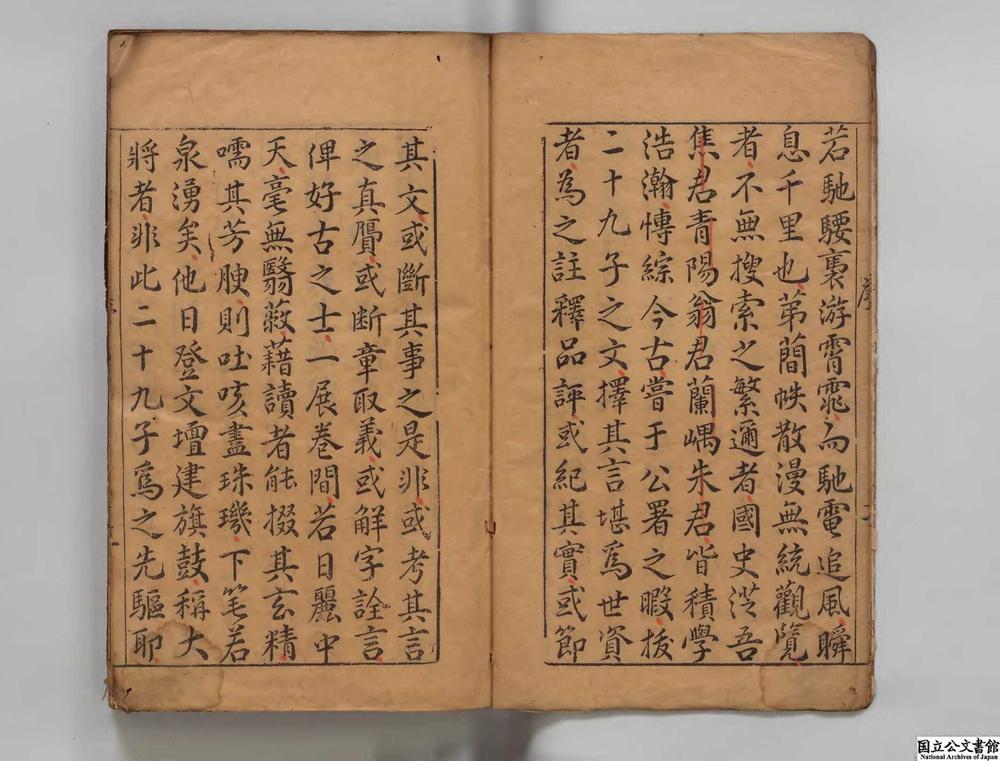 若馳騕褭游霄霏而馳電追風瞬
息千里也第蕳帙散漫無統觀覽
者不無搜索之繁邇者國史漪吾
焦君青陽翁君蘭嵎朱君皆積學
浩瀚慱綜今古嘗于公署之暇拔
二十九子之文擇其言堪爲世資
者為之註釋品評或紀其實或節
其文或斷其事之是非或考其言
之真贋或断章取義或觧字詮言
俾好古之士一展巻間若日麗中
天毫無翳蔽藉讀者能掇其玄精
嚅其芳腴則吐咳盡珠璣下笔若
泉湧矣他日登文壇建旗鼓稱大
將者非此二十九子爲之先驅耶
序
二
国立公文書館
National Archives of Japan